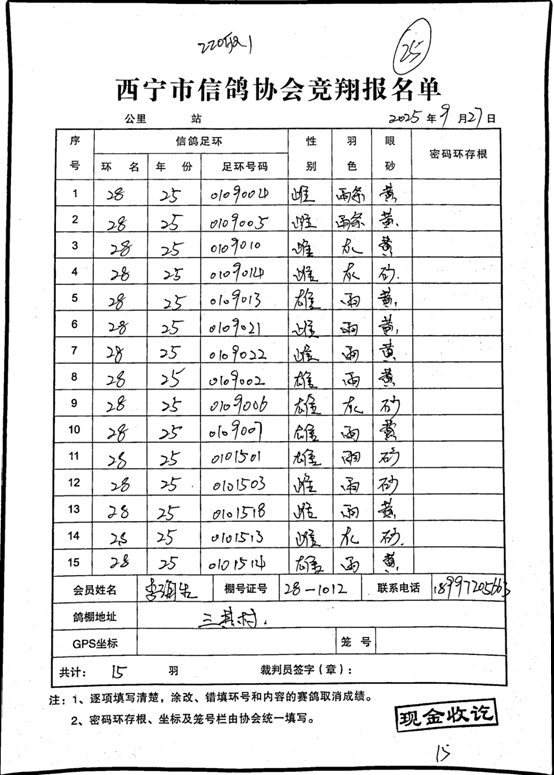 220取1
25
西宁市信鸽协会竞翔报名单
公里 站 2025年9月27日
序号 信鸽足环 性别 羽色 眼砂 密码环存根
环名 年份 足环号码
1 28 25 0109004 雌 雨条 黄
2 28 25 0109005 雌 雨条 黄
3 28 25 0109010 雌 灰 黄
4 28 25 0109014 雌 灰 砂
5 28 25 0109013 雄 雨 黄
6 28 25 0109021 雌 雨 黄
7 28 25 0109022 雌 雨 黄
8 28 25 0109002 雄 雨 黄
9 28 25 0109006 雄 灰 砂
10 28 25 0109007 雄 雨 黄
11 28 25 0101501 雄 雨 砂
12 28 25 0101503 雌 雨 砂
13 28 25 0101518 雌 雨 黄
14 28 25 0101513 雌 灰 砂
15 28 25 0101514 雄 雨 黄
会员姓名 李 棚号证号 28-1012 联系电话 18997205663
鸽棚地址 三其村
GPS坐标 笼号
共计：15 羽 裁判员签字（章）：
注：1、逐项填写清楚，涂改、错填环号和内容的赛鸽取消成绩。
2、密码环存根、坐标及笼号栏由协会统一填写。
现金收讫
15